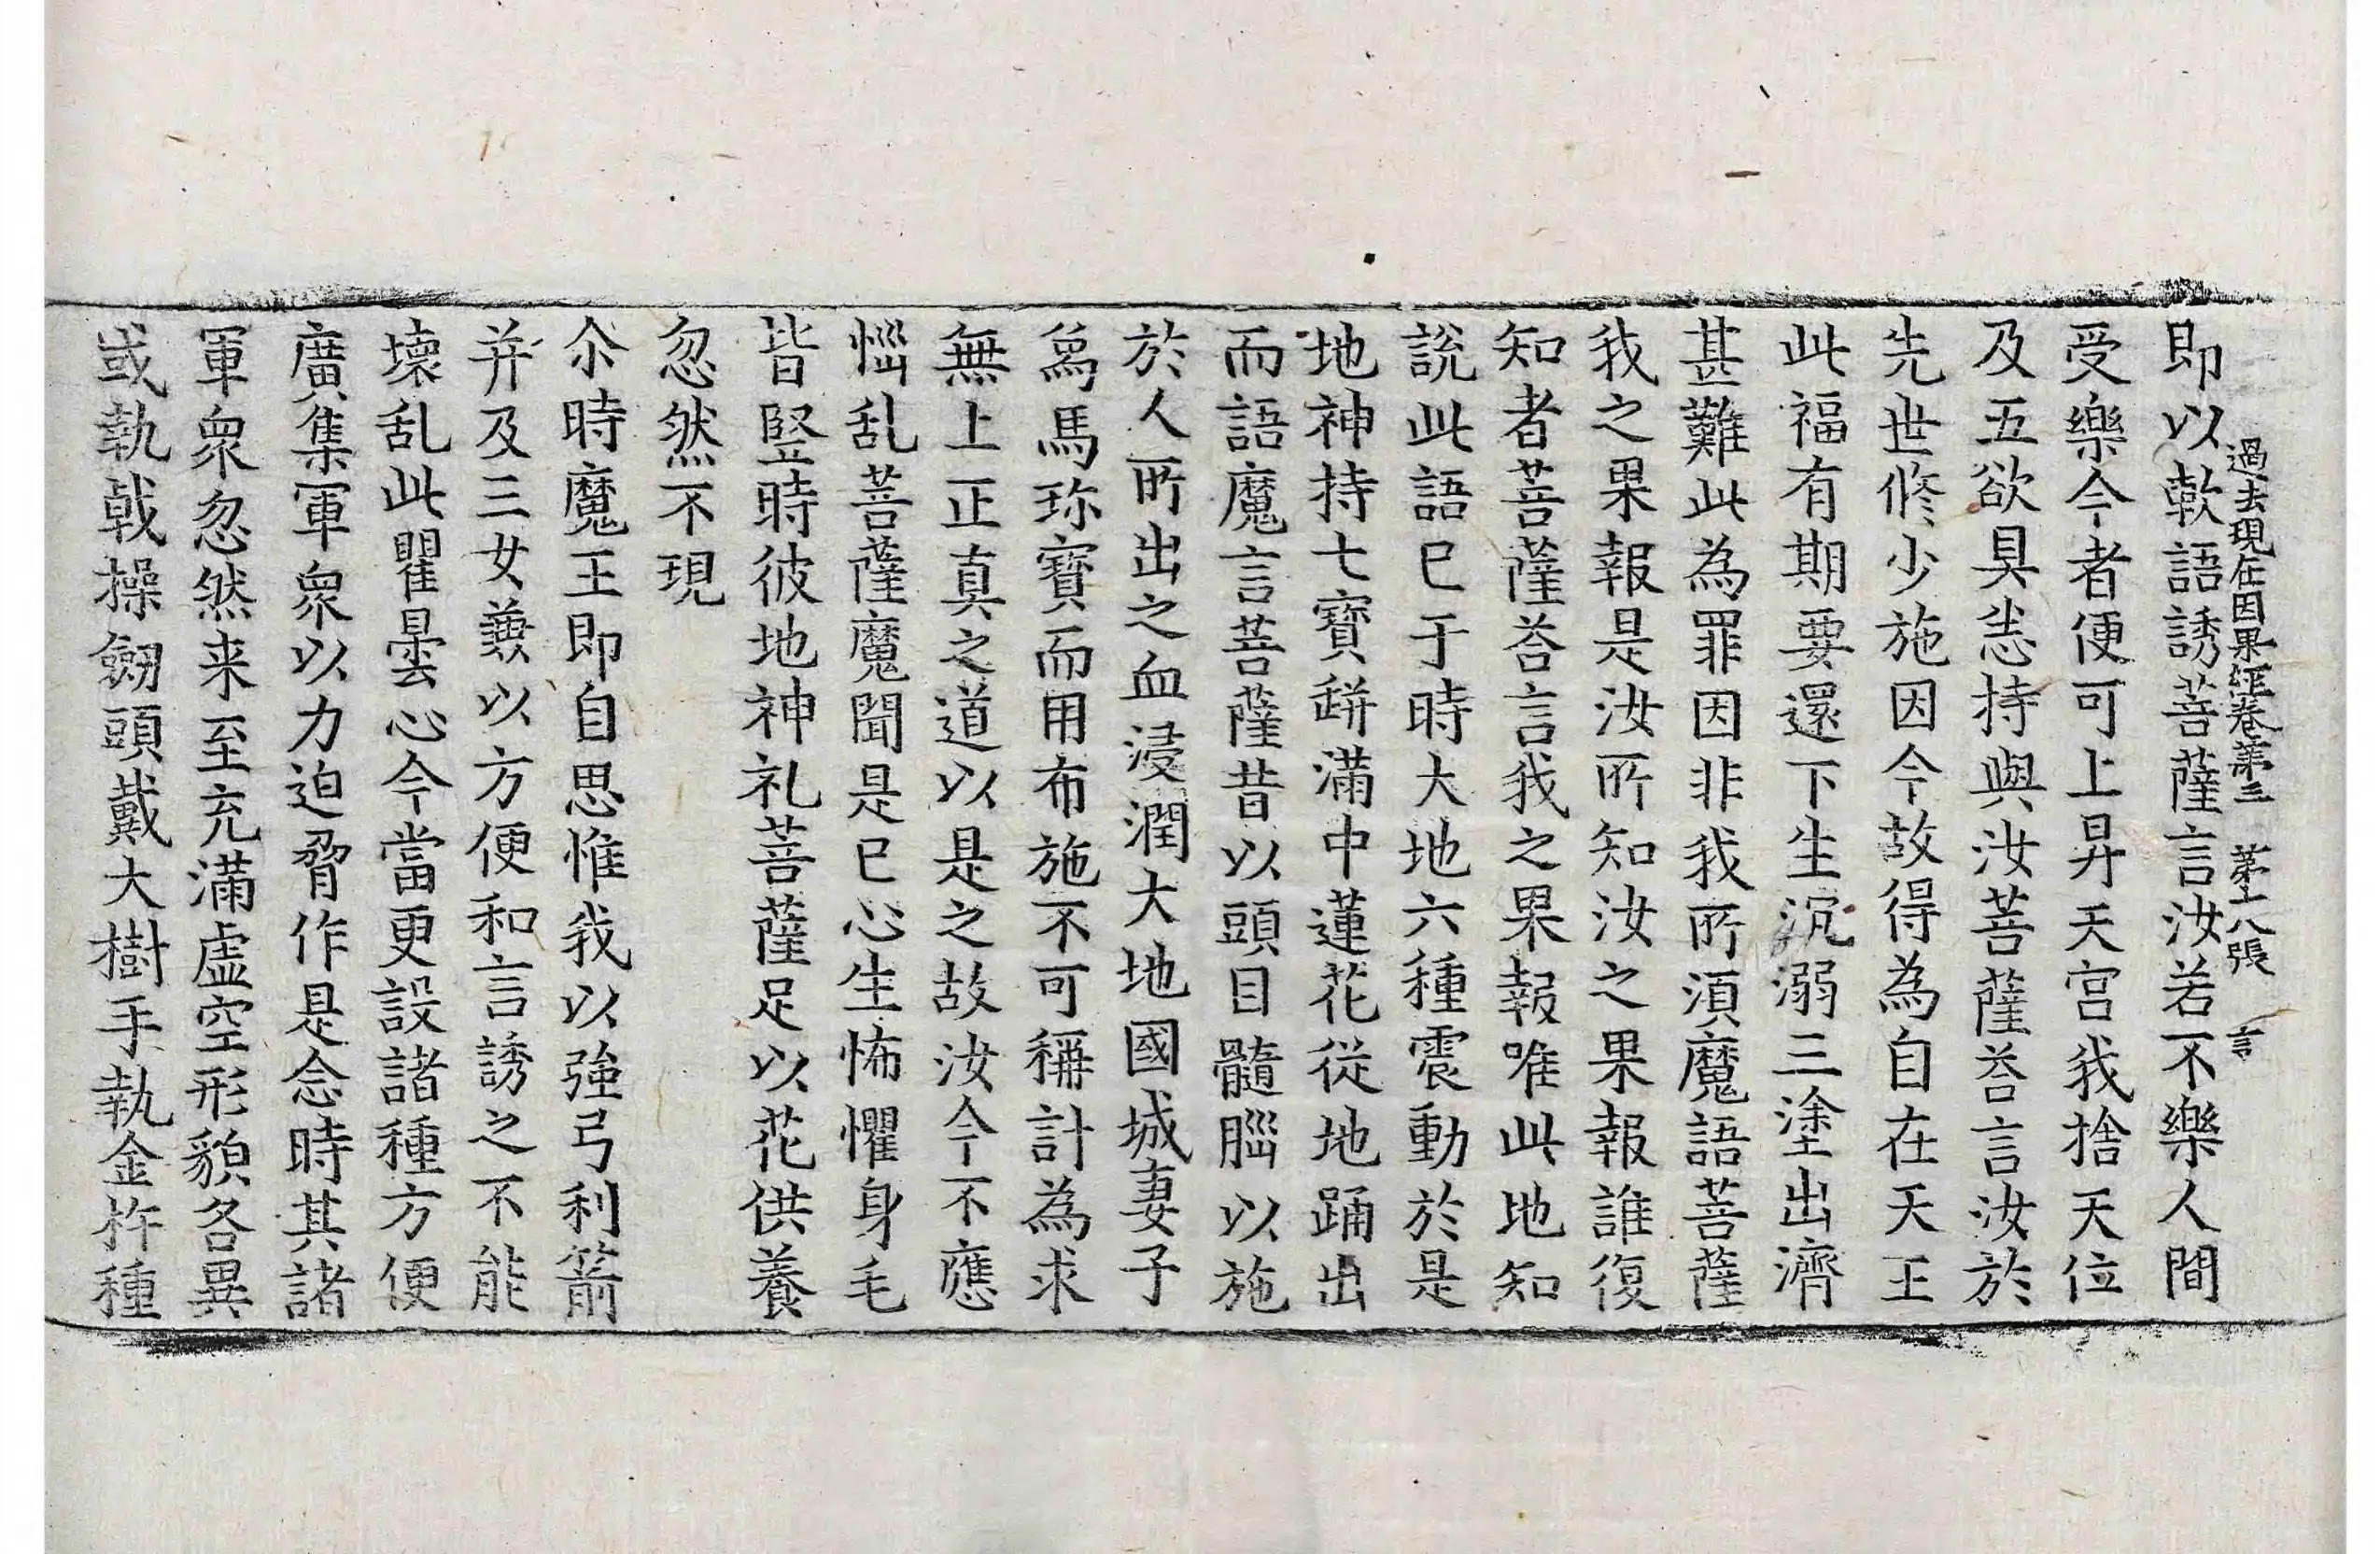 過去現在因果経卷苐三 苐十八張 言
即以軟語誘菩薩言汝若不樂人間
受樂今者便可上昇天宮我捨天位
及五欲具悉持與汝菩薩荅言汝於
先世修少施因今故得為自在天王
此福有期要還下生沉溺三塗出濟
甚難此為罪因非我所湏魔語菩薩
我之果報是汝所知汝之果報誰復
知者菩薩荅言我之果報唯此地知
說此語已于時大地六種震動於是
地神持七寶缾滿中蓮花從地踊出
而語魔言菩薩昔以頭目髓腦以施
於人所出之血浸潤大地國城妻子
爲馬珎寶而用布施不可稱計為求
無上正真之道以是之故汝今不應
惱乱菩薩魔聞是已心生怖懼身毛
皆竪時彼地神礼菩薩足以花供養
忽然不現
尒時魔王即自思惟我以強弓利箭
并及三女兼以方便和言誘之不能
壊乱此瞿曇心今當更設諸種方便
廣集軍衆以力迫脅作是念時其諸
軍衆忽然来至充滿虛空形貌各異
或執戟操劒頭戴大樹手執金杵種